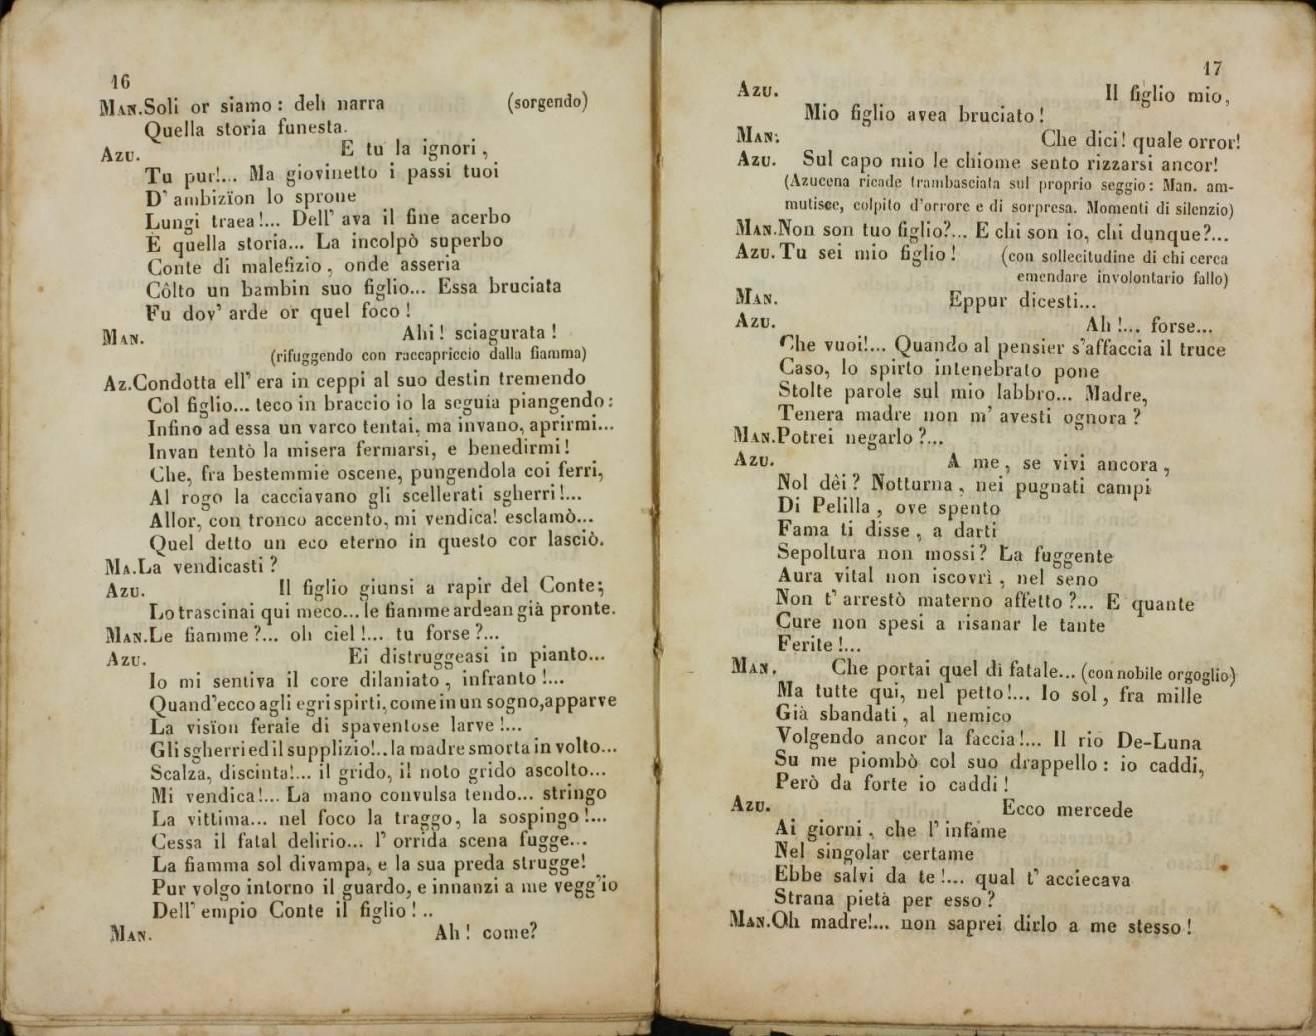 16
MAN. Soli or siamo : deh narra (sorgendo)
Quella storia funesta.
AZU. E tu la ignori,
Tu pur!... Ma giovinetto i passi tuoi
D' ambizïon lo sprone
Lungi traea!... Dell' ava il fine acerbo
È quella storia... La incolpò superbo
Conte di malefizio, onde asseria
Côlto un bambin suo figlio... Essa bruciata
Fu dov' arde or quel foco !
MAN. Ahi ! sciagurata !
(rifuggendo con raccapriccio dalla fiamma)
AZ. Condotta ell' era in ceppi al suo destin tremendo
Col figlio... teco in braccio io la seguia piangendo :
Infino ad essa un varco tentai, ma invano, aprirmi...
Invan tentò la misera fermarsi, e benedirmi !
Che, fra bestemmie oscene, pungendola coi ferri,
Al rogo la cacciavano gli scellerati sgherri !...
Allor, con tronco accento, mi vendica! esclamò...
Quel detto un eco eterno in questo cor lasciò.
MA. La vendicasti ?
AZU. Il figlio giunsi a rapir del Conte;
Lo trascinai qui meco... le fiamme ardean già pronte.
MAN. Le fiamme ?... oh ciel !... tu forse ?...
AZU. Ei distruggeasi in pianto...
Io mi sentiva il core dilaniato, infranto !...
Quand' ecco agli egri spirti, come in un sogno, apparve
La visïon ferale di spaventose larve !...
Gli sgherri ed il supplizio!.. la madre smorta in volto...
Scalza, discinta!... il grido, il noto grido ascolto...
Mi vendica!... La mano convulsa tendo... stringo
La vittima... nel foco la traggo, la sospingo !...
Cessa il fatal delirio... l' orrida scena fugge...
La fiamma sol divampa, e la sua preda strugge!
Pur volgo intorno il guardo, e innanzi a me vegg'io
Dell' empio Conte il figlio ! ..
MAN. Ah ! come?
17
AZU. Il figlio mio,
Mio figlio avea bruciato !
MAN. Che dici ! quale orror!
AZU. Sul capo mio le chiome sento rizzarsi ancor!
(Azucena ricade trambasciata sul proprio seggio : Man. am-
mutisce, colpito d'orrore e di sorpresa. Momenti di silenzio)
MAN. Non son tuo figlio?... E chi son io, chi dunque?...
AZU. Tu sei mio figlio ! (con sollecitudine di chi cerca
emendare involontario fallo)
MAN. Eppur dicesti...
AZU. Ah !... forse...
Che vuoi!... Quando al pensier s'affaccia il truce
Caso, lo spirto intenebrato pone
Stolte parole sul mio labbro... Madre,
Tenera madre non m' avesti ognora ?
MAN. Potrei negarlo ?...
AZU. A me, se vivi ancora,
Nol dêi ? Notturna, nei pugnati campi
Di Pelilla, ove spento
Fama ti disse, a darti
Sepoltura non mossi ? La fuggente
Aura vital non iscovrì, nel seno
Non t' arrestò materno affetto ?... E quante
Cure non spesi a risanar le tante
Ferite !...
MAN. Che portai quel dì fatale... (con nobile orgoglio)
Ma tutte qui, nel petto !... Io sol, fra mille
Già sbandati, al nemico
Volgendo ancor la faccia !... Il rio De-Luna
Su me piombò col suo drappello : io caddi,
Però da forte io caddi !
AZU. Ecco mercede
Ai giorni, che l' infame
Nel singolar certame
Ebbe salvi da te !... qual t' acciecava
Strana pietà per esso ?
MAN. Oh madre!... non saprei dirlo a me stesso !